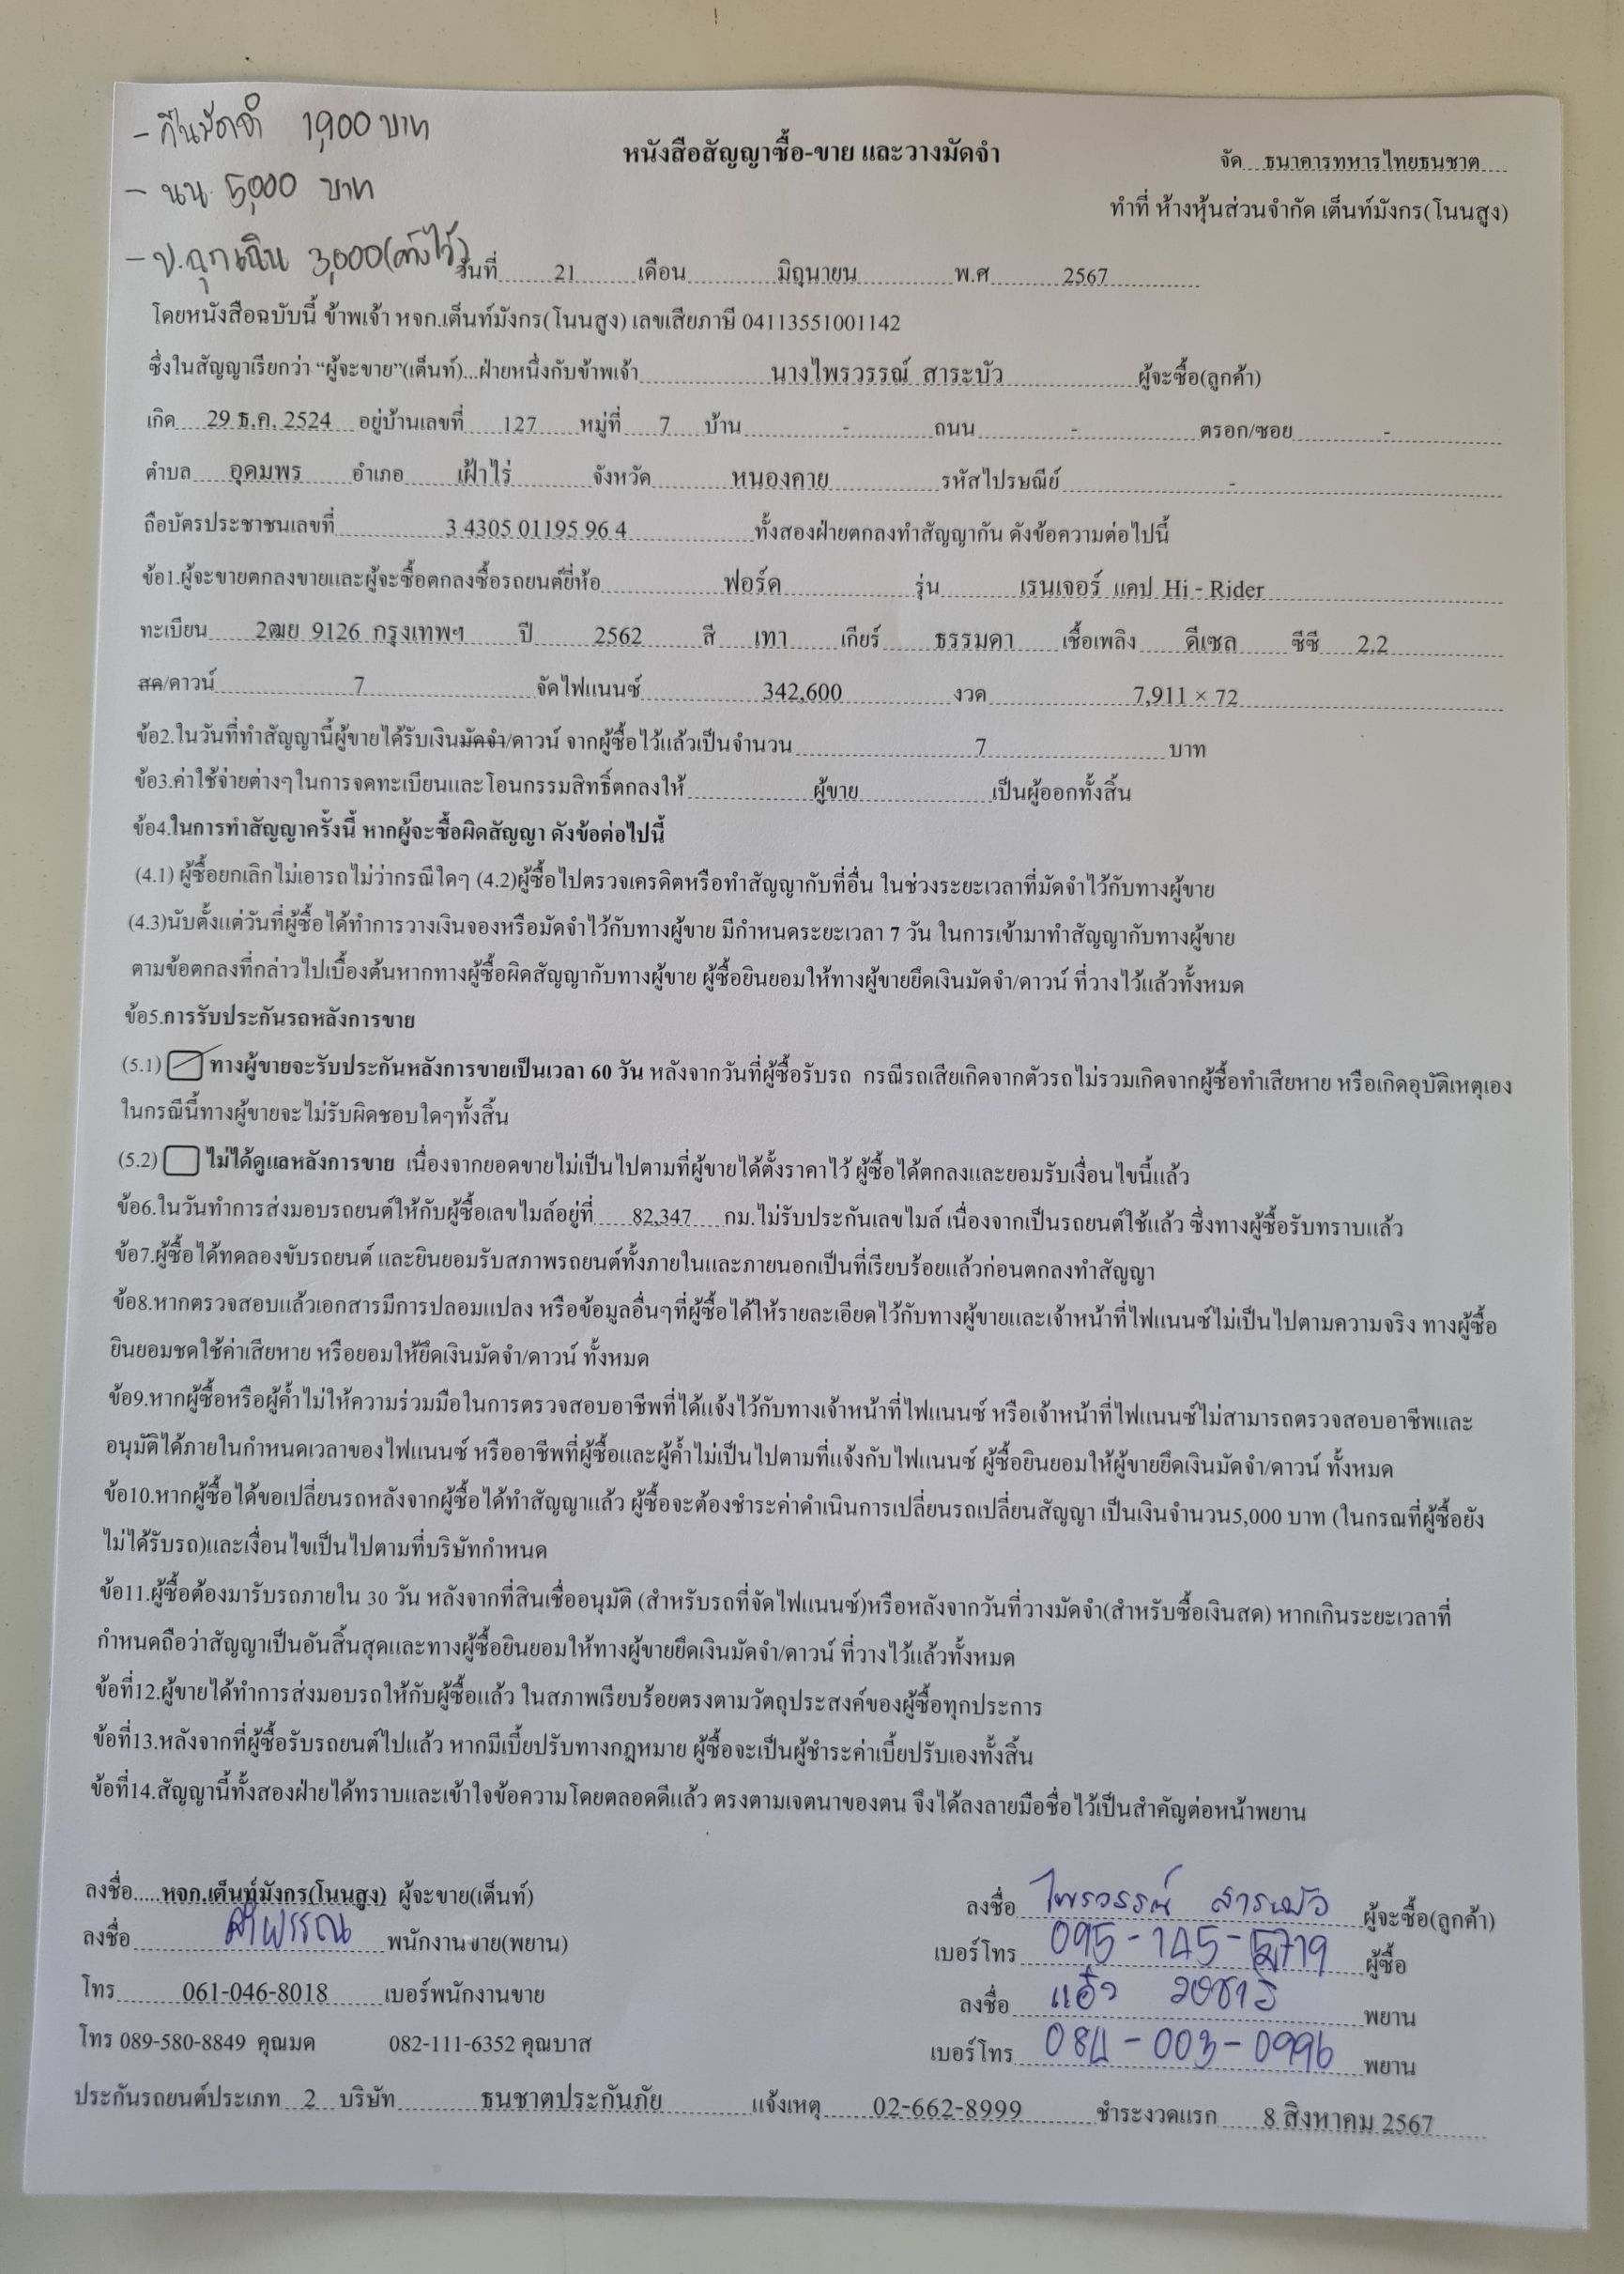 - คืนมัดจำ 1,900 บาท
- นน. 5,000 บาท
- ป.ฉุกเฉิน 3,000(ค้างไว้)
หนังสือสัญญาซื้อ-ขาย และวางมัดจำ
จัด ธนาคารทหารไทยธนชาต
ทำที่ ห้างหุ้นส่วนจำกัด เต็นท์มังกร(โนนสูง)
วันที่ 21 เดือน มิถุนายน พ.ศ 2567
โดยหนังสือฉบับนี้ ข้าพเจ้า หจก.เต็นท์มังกร(โนนสูง) เลขเสียภาษี 04113551001142
ซึ่งในสัญญาเรียกว่า “ผู้จะขาย”(เต็นท์)...ฝ่ายหนึ่งกับข้าพเจ้า นางไพรวรรณ์ สาระบัว ผู้จะซื้อ(ลูกค้า)
เกิด 29 ธ.ค. 2524 อยู่บ้านเลขที่ 127 หมู่ที่ 7 บ้าน - ถนน - ตรอก/ซอย -
ตำบล อุดมพร อำเภอ เฝ้าไร่ จังหวัด หนองคาย รหัสไปรษณีย์ -
ถือบัตรประชาชนเลขที่ 3 4305 01195 96 4 ทั้งสองฝ่ายตกลงทำสัญญากัน ดังข้อความต่อไปนี้
ข้อ1.ผู้จะขายตกลงขายและผู้จะซื้อตกลงซื้อรถยนต์ยี่ห้อ ฟอร์ด รุ่น เรนเจอร์ แคป Hi - Rider
ทะเบียน 2ฒย 9126 กรุงเทพฯ ปี 2562 สี เทา เกียร์ ธรรมดา เชื้อเพลิง ดีเซล ซีซี 2.2
สด/ดาวน์ 7 จัดไฟแนนซ์ 342,600 งวด 7,911 × 72
ข้อ2.ในวันที่ทำสัญญานี้ผู้ขายได้รับเงินมัดจำ/ดาวน์ จากผู้ซื้อไว้แล้วเป็นจำนวน 7 บาท
ข้อ3.ค่าใช้จ่ายต่างๆในการจดทะเบียนและโอนกรรมสิทธิ์ตกลงให้ ผู้ขาย เป็นผู้ออกทั้งสิ้น
ข้อ4.ในการทำสัญญาครั้งนี้ หากผู้จะซื้อผิดสัญญา ดังข้อต่อไปนี้
(4.1) ผู้ซื้อยกเลิกไม่เอารถไม่ว่ากรณีใดๆ (4.2)ผู้ซื้อไปตรวจเครดิตหรือทำสัญญากับที่อื่น ในช่วงระยะเวลาที่มัดจำไว้กับทางผู้ขาย
(4.3)นับตั้งแต่วันที่ผู้ซื้อได้ทำการวางเงินจองหรือมัดจำไว้กับทางผู้ขาย มีกำหนดระยะเวลา 7 วัน ในการเข้ามาทำสัญญากับทางผู้ขาย
ตามข้อตกลงที่กล่าวไปเบื้องต้นหากทางผู้ซื้อผิดสัญญากับทางผู้ขาย ผู้ซื้อยินยอมให้ทางผู้ขายยึดเงินมัดจำ/ดาวน์ ที่วางไว้แล้วทั้งหมด
ข้อ5.การรับประกันรถหลังการขาย
(5.1) ทางผู้ขายจะรับประกันหลังการขายเป็นเวลา 60 วัน หลังจากวันที่ผู้ซื้อรับรถ กรณีรถเสียเกิดจากตัวรถไม่รวมเกิดจากผู้ซื้อทำเสียหาย หรือเกิดอุบัติเหตุเอง
ในกรณีนี้ทางผู้ขายจะไม่รับผิดชอบใดๆทั้งสิ้น
(5.2) ไม่ได้ดูแลหลังการขาย เนื่องจากยอดขายไม่เป็นไปตามที่ผู้ขายได้ตั้งราคาไว้ ผู้ซื้อได้ตกลงและยอมรับเงื่อนไขนี้แล้ว
ข้อ6.ในวันทำการส่งมอบรถยนต์ให้กับผู้ซื้อเลขไมล์อยู่ที่ 82,347 กม.ไม่รับประกันเลขไมล์ เนื่องจากเป็นรถยนต์ใช้แล้ว ซึ่งทางผู้ซื้อรับทราบแล้ว
ข้อ7.ผู้ซื้อได้ทดลองขับรถยนต์ และยินยอมรับสภาพรถยนต์ทั้งภายในและภายนอกเป็นที่เรียบร้อยแล้วก่อนตกลงทำสัญญา
ข้อ8.หากตรวจสอบแล้วเอกสารมีการปลอมแปลง หรือข้อมูลอื่นๆที่ผู้ซื้อได้ให้รายละเอียดไว้กับทางผู้ขายและเจ้าหน้าที่ไฟแนนซ์ไม่เป็นไปตามความจริง ทางผู้ซื้อ
ยินยอมชดใช้ค่าเสียหาย หรือยอมให้ยึดเงินมัดจำ/ดาวน์ ทั้งหมด
ข้อ9.หากผู้ซื้อหรือผู้ค้ำไม่ให้ความร่วมมือในการตรวจสอบอาชีพที่ได้แจ้งไว้กับทางเจ้าหน้าที่ไฟแนนซ์ หรือเจ้าหน้าที่ไฟแนนซ์ไม่สามารถตรวจสอบอาชีพและ
อนุมัติได้ภายในกำหนดเวลาของไฟแนนซ์ หรืออาชีพที่ผู้ซื้อและผู้ค้ำไม่เป็นไปตามที่แจ้งกับไฟแนนซ์ ผู้ซื้อยินยอมให้ผู้ขายยึดเงินมัดจำ/ดาวน์ ทั้งหมด
ข้อ10.หากผู้ซื้อได้ขอเปลี่ยนรถหลังจากผู้ซื้อได้ทำสัญญาแล้ว ผู้ซื้อจะต้องชำระค่าดำเนินการเปลี่ยนรถเปลี่ยนสัญญา เป็นเงินจำนวน5,000 บาท (ในกรณที่ผู้ซื้อยัง
ไม่ได้รับรถ)และเงื่อนไขเป็นไปตามที่บริษัทกำหนด
ข้อ11.ผู้ซื้อต้องมารับรถภายใน 30 วัน หลังจากที่สินเชื่ออนุมัติ (สำหรับรถที่จัดไฟแนนซ์)หรือหลังจากวันที่วางมัดจำ(สำหรับซื้อเงินสด) หากเกินระยะเวลาที่
กำหนดถือว่าสัญญาเป็นอันสิ้นสุดและทางผู้ซื้อยินยอมให้ทางผู้ขายยึดเงินมัดจำ/ดาวน์ ที่วางไว้แล้วทั้งหมด
ข้อที่12.ผู้ขายได้ทำการส่งมอบรถให้กับผู้ซื้อแล้ว ในสภาพเรียบร้อยตรงตามวัตถุประสงค์ของผู้ซื้อทุกประการ
ข้อที่13.หลังจากที่ผู้ซื้อรับรถยนต์ไปแล้ว หากมีเบี้ยปรับทางกฎหมาย ผู้ซื้อจะเป็นผู้ชำระค่าเบี้ยปรับเองทั้งสิ้น
ข้อที่14.สัญญานี้ทั้งสองฝ่ายได้ทราบและเข้าใจข้อความโดยตลอดดีแล้ว ตรงตามเจตนาของตน จึงได้ลงลายมือชื่อไว้เป็นสำคัญต่อหน้าพยาน
ลงชื่อ.....หจก.เต็นท์มังกร(โนนสูง) ผู้จะขาย(เต็นท์)
ลงชื่อ พนักงานขาย(พยาน)
โทร 061-046-8018 เบอร์พนักงานขาย
โทร 089-580-8849 คุณมด 082-111-6352 คุณบาส
ลงชื่อ ไพรวรรณ์ สาระบัว ผู้จะซื้อ(ลูกค้า)
เบอร์โทร 095-145-5719 ผู้ซื้อ
ลงชื่อ พยาน
เบอร์โทร 084-003-0996 พยาน
ประกันรถยนต์ประเภท 2 บริษัท ธนชาตประกันภัย แจ้งเหตุ 02-662-8999 ชำระงวดแรก 8 สิงหาคม 2567